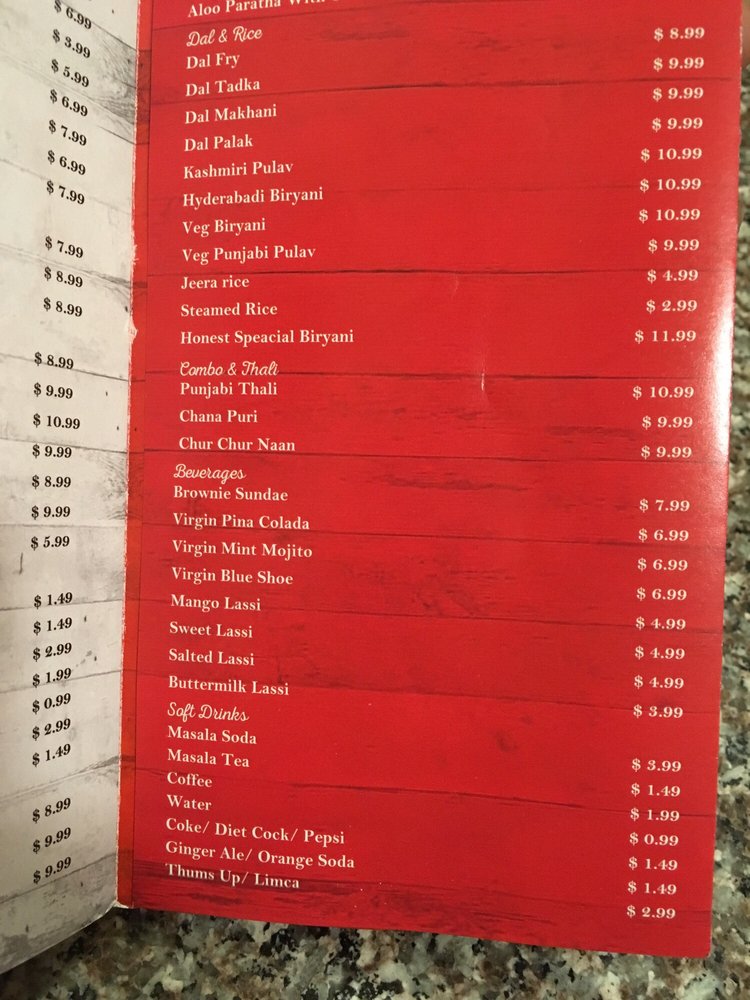 $ 6.99
$ 3.99
$ 5.99
$ 6.99
$ 7.99
$ 6.99
$ 7.99
$ 7.99
$ 8.99
$ 8.99
$ 8.99
$ 9.99
$ 10.99
$ 9.99
$ 8.99
$ 9.99
$ 5.99
$ 1.49
$ 1.49
$ 2.99
$ 1.99
$ 0.99
$ 2.99
$ 1.49
$ 8.99
$ 9.99
$ 9.99
Aloo Paratha With
Dal & Rice
Dal Fry $ 8.99
Dal Tadka $ 9.99
Dal Makhani $ 9.99
Dal Palak $ 9.99
Kashmiri Pulav $ 10.99
Hyderabadi Biryani $ 10.99
Veg Biryani $ 10.99
Veg Punjabi Pulav $ 9.99
Jeera rice $ 4.99
Steamed Rice $ 2.99
Honest Speacial Biryani $ 11.99
Combo & Thali
Punjabi Thali $ 10.99
Chana Puri $ 9.99
Chur Chur Naan $ 9.99
Beverages
Brownie Sundae $ 7.99
Virgin Pina Colada $ 6.99
Virgin Mint Mojito $ 6.99
Virgin Blue Shoe $ 6.99
Mango Lassi $ 4.99
Sweet Lassi $ 4.99
Salted Lassi $ 4.99
Buttermilk Lassi $ 3.99
Soft Drinks
Masala Soda $ 3.99
Masala Tea $ 1.49
Coffee $ 1.99
Water $ 0.99
Coke/ Diet Cock/ Pepsi $ 1.49
Ginger Ale/ Orange Soda $ 1.49
Thums Up/ Limca $ 2.99